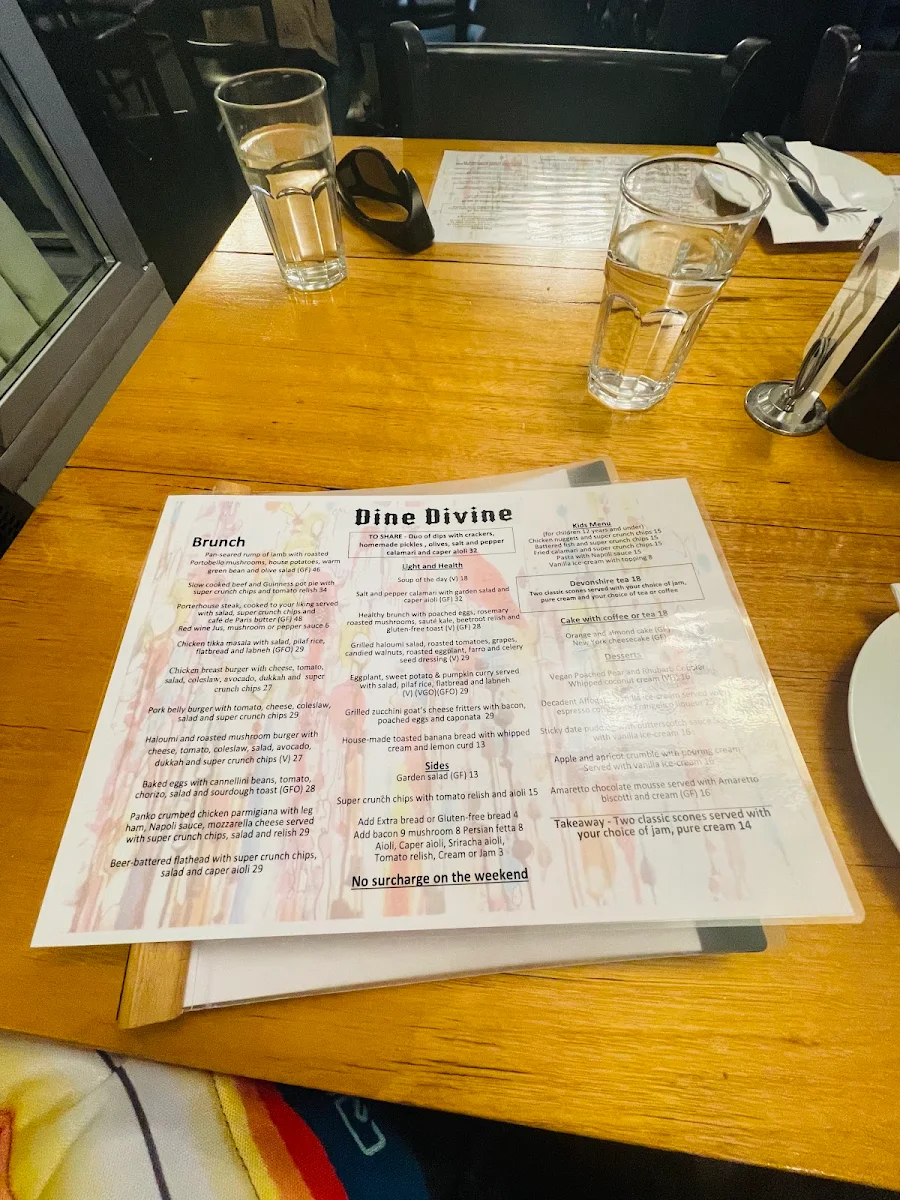 Dine Divine
Brunch
Pan-seared rump of lamb with roasted
Portobello mushrooms, house potatoes, warm
green bean and olive salad (GF) 46
Slow cooked beef and Guinness pot pie with
super crunch chips and tomato relish 34
Porterhouse steak, cooked to your liking served
with salad, super crunch chips and
café de Paris butter (GF) 48
Red wine Jus, mushroom or pepper sauce 6
Chicken tikka masala with salad, pilaf rice,
flatbread and labneh (GFO) 29
Chicken breast burger with cheese, tomato,
salad, coleslaw, avocado, dukkah and super
crunch chips 27
Pork belly burger with tomato, cheese, coleslaw,
salad and super crunch chips 29
Haloumi and roasted mushroom burger with
cheese, tomato, coleslaw, salad, avocado,
dukkah and super crunch chips (V) 27
Baked eggs with cannellini beans, tomato,
chorizo, salad and sourdough toast (GFO) 28
Panko crumbed chicken parmigiana with leg
ham, Napoli sauce, mozzarella cheese served
with super crunch chips, salad and relish 29
Beer-battered flathead with super crunch chips,
salad and caper aioli 29
TO SHARE - Duo of dips with crackers,
homemade pickles , olives, salt and pepper
calamari and caper aioli 32
Light and Health
Soup of the day (V) 18
Salt and pepper calamari with garden salad and
caper aioli (GF) 32
Healthy brunch with poached eggs, rosemary
roasted mushrooms, sauté kale, beetroot relish and
gluten-free toast (V) (GF) 28
Grilled haloumi salad, roasted tomatoes, grapes,
candied walnuts, roasted eggplant, farro and celery
seed dressing (V) 29
Eggplant, sweet potato & pumpkin curry served
with salad, pilaf rice, flatbread and labneh
(V) (VGO)(GFO) 29
Grilled zucchini goat's cheese fritters with bacon,
poached eggs and caponata 29
House-made toasted banana bread with whipped
cream and lemon curd 13
Sides
Garden salad (GF) 13
Super crunch chips with tomato relish and aioli 15
Add Extra bread or Gluten-free bread 4
Add bacon 9 mushroom 8 Persian fetta 8
Aioli, Caper aioli, Sriracha aioli,
Tomato relish, Cream or Jam 3
No surcharge on the weekend
Kids Menu
(for children 12 years and under)
Chicken nuggets and super crunch chips 15
Battered fish and super crunch chips 15
Fried calamari and super crunch chips 15
Pasta with Napoli sauce 15
Vanilla ice-cream with topping 8
Devonshire tea 18
Two classic scones served with your choice of jam,
pure cream and your choice of tea or coffee
Cake with coffee or tea 18
Orange and almond cake (GF)
New York cheesecake (GF)
Desserts
Vegan Poached Pear and Rhubarb
Whipped coconut cream (V) 16
Decadent ice-cream served with
espresso liqueur
Sticky date pudding butterscotch sauce
with vanilla ice-cream 16
Apple and apricot crumble with pouring cream
Served with vanilla ice-cream 16
Amaretto chocolate mousse served with Amaretto
biscotti and cream (GF) 16
Takeaway - Two classic scones served with
your choice of jam, pure cream 14